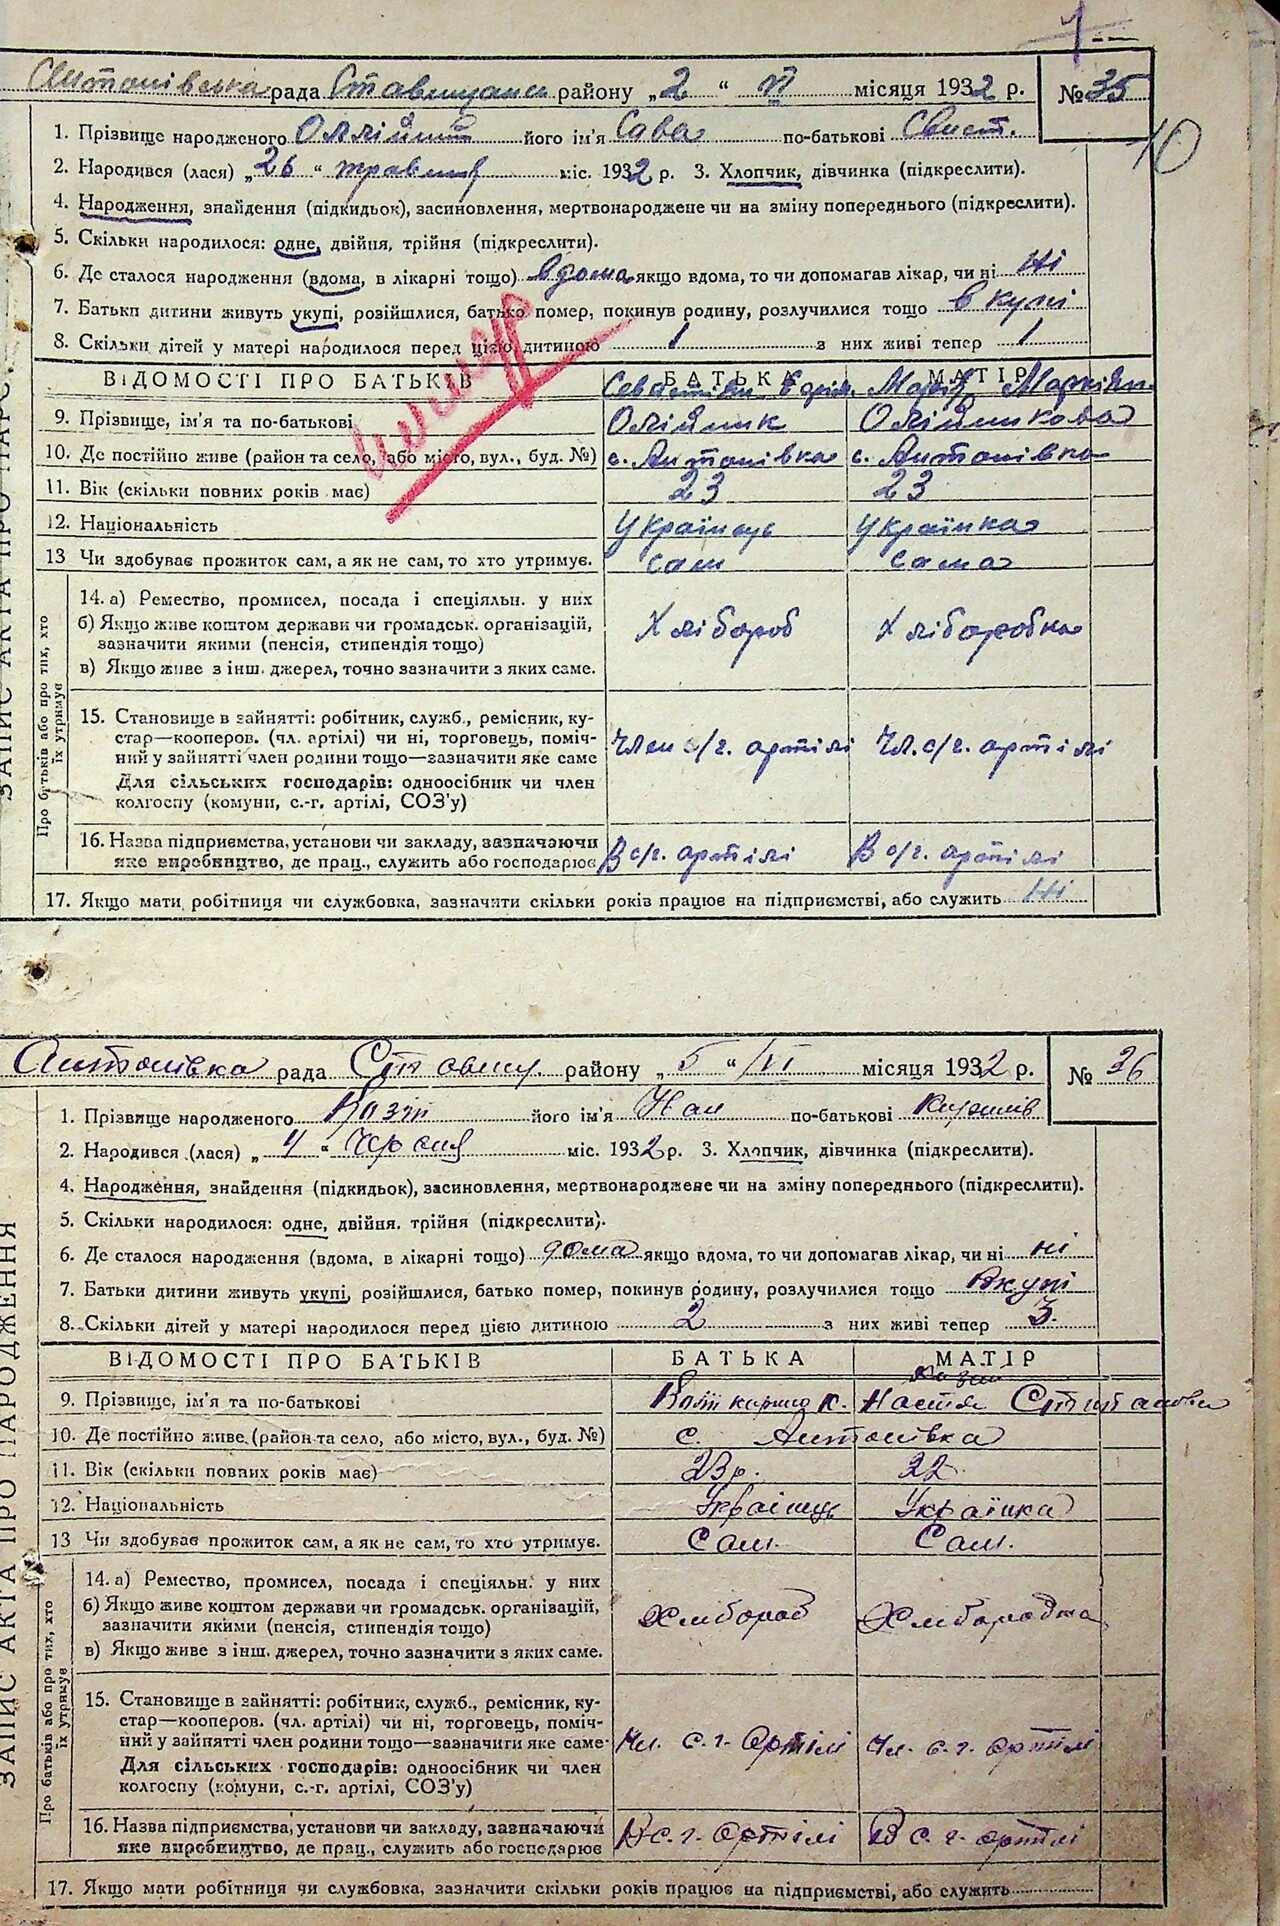 1
Антонівська рада Ставищан. району „2 “ VI місяця 1932 р. № 35
10
1. Прізвище народженого Олійник його ім'я Сава по-батькові Свист.
2. Народився (лася) „26 “ травня міс. 1932 р. 3. Хлопчик, дівчинка (підкреслити).
4. Народження, знайдення (підкидьок), засиновлення, мертвонароджене чи на зміну попереднього (підкреслити).
5. Скільки народилося: одне, двійня, трійня (підкреслити).
6. Де сталося народження (вдома, в лікарні тощо) вдома якщо вдома, то чи допомагав лікар, чи ні Ні
7. Батьки дитини живуть укупі, розійшлися, батько помер, покинув родину, розлучилися тощо в купі
8. Скільки дітей у матері народилося перед цією дитиною 1 з них живі тепер 1
ВІДОМОСТІ ПРО БАТЬКІВ БАТЬКА МАТІР
9. Прізвище, ім'я та по-батькові Олійник Марія Олійникова
10. Де постійно живе (район та село, або місто, вул., буд. №) с. Антонівка с. Антонівка
11. Вік (скільки повних років має) 23 23
12. Національність Українець Українка
13 Чи здобуває прожиток сам, а як не сам, то хто утримує. сам сама
Про батьків або про тих, хто їх утримує
14. а) Ремество, промисел, посада і спеціяльн. у них
б) Якщо живе коштом держави чи громадськ. організацій,
зазначити якими (пенсія, стипендія тощо) Хлібороб Хліборобка
в) Якщо живе з інш. джерел, точно зазначити з яких саме.
15. Становище в зайнятті: робітник, служб., ремісник, ку-
стар—кооперов. (чл. артілі) чи ні, торговець, поміч-
ний у зайнятті член родини тощо—зазначити яке саме Член с/г. артілі Чл. с/г. артілі
Для сільських господарів: одноосібник чи член
колгоспу (комуни, с.-г. артілі, СОЗ'у)
16. Назва підприємства, установи чи закладу, зазначаючи
яке виробництво, де прац., служить або господарює В с/г. артілі В с/г. артілі
17. Якщо мати робітниця чи службовка, зазначити скільки років працює на підприємстві, або служить Ні
ЗАПИС АКТА ПРО НАРОДЖЕННЯ
Антонівка рада Ставищ. району „5 “ VI місяця 1932 р. № 36
1. Прізвище народженого його ім'я Іван по-батькові Кирилів
2. Народився (лася) „4 “ Червня міс. 1932 р. 3. Хлопчик, дівчинка (підкреслити).
4. Народження, знайдення (підкидьок), засиновлення, мертвонароджене чи на зміну попереднього (підкреслити).
5. Скільки народилося: одне, двійня. трійня (підкреслити).
6. Де сталося народження (вдома, в лікарні тощо) дома якщо вдома, то чи допомагав лікар, чи ні ні
7. Батьки дитини живуть укупі, розійшлися, батько помер, покинув родину, розлучилися тощо Вкупі
8. Скільки дітей у матері народилося перед цією дитиною 2 з них живі тепер 3.
ВІДОМОСТІ ПРО БАТЬКІВ БАТЬКА МАТІР
9. Прізвище, ім'я та по-батькові Кирило К. Настя Степанова
10. Де постійно живе (район та село, або місто, вул., буд. №) с. Антонівка
11. Вік (скільки повних років має) 23 р. 22
12. Національність Українець Українка
13 Чи здобуває прожиток сам, а як не сам, то хто утримує. Сам. Сам.
Про батьків або про тих, хто їх утримує
14. а) Ремество, промисел, посада і спеціяльн. у них
б) Якщо живе коштом держави чи громадськ. організацій,
зазначити якими (пенсія, стипендія тощо) Хлібороб Хліборобка
в) Якщо живе з інш. джерел, точно зазначити з яких саме.
15. Становище в зайнятті: робітник, служб., ремісник, ку-
стар—кооперов. (чл. артілі) чи ні, торговець, поміч-
ний у зайнятті член родини тощо—зазначити яке саме Чл. с. г. Артілі Чл. с. г. артілі
Для сільських господарів: одноосібник чи член
колгоспу (комуни, с.-г. артілі, СОЗ'у)
16. Назва підприємства, установи чи закладу, зазначаючи
яке виробництво, де прац., служить або господарює В с. г. Артілі В с. г. артілі
17. Якщо мати робітниця чи службовка, зазначити скільки років працює на підприємстві, або служить